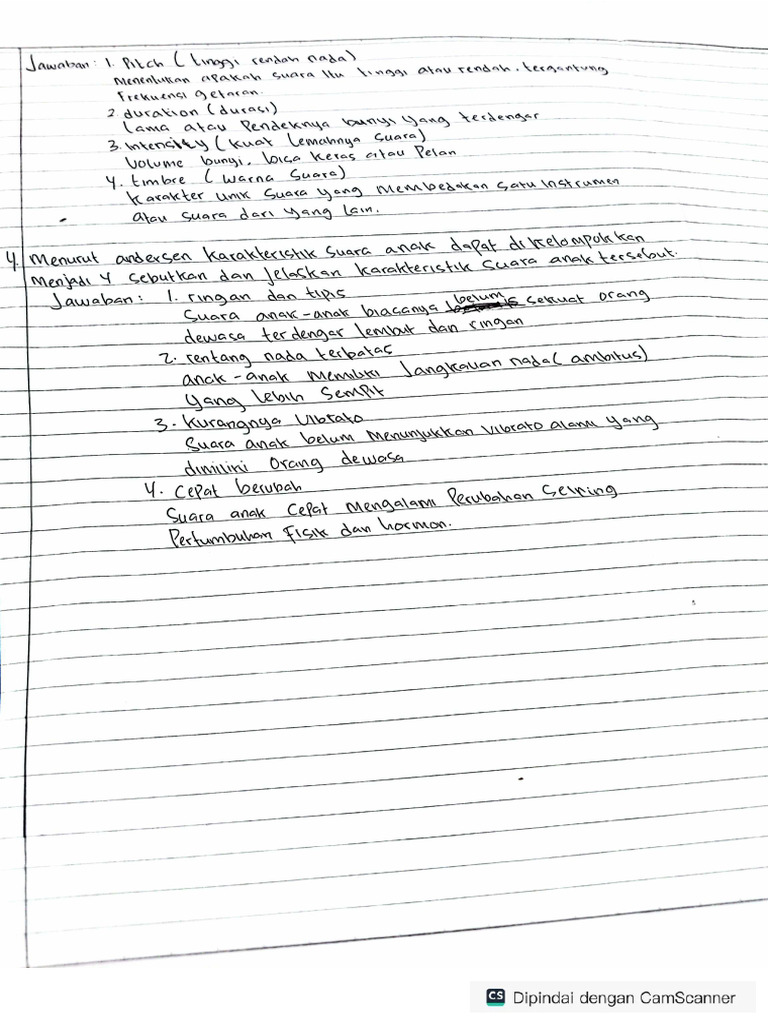 Jawaban : 1. Pitch ( tinggi rendah nada )
Menentukan apakah suara itu tinggi atau rendah. tergantung
Frekuensi getaran.
2. duration ( durasi )
Lama atau Pendeknya bunyi yang terdengar
3. intensity ( kuat Lemahnya suara )
Volume bunyi. bisa keras atau Pelan
4. timbre ( warna suara )
Karakter unik suara yang membedakan satu instrumen
atau suara dari yang lain.
4. Menurut andersen karakteristik suara anak dapat di kelompokkan
Menjadi 4 sebutkan dan jelaskan karakteristik suara anak tersebut.
Jawaban : 1. ringan dan tipis
Suara anak-anak biasanya belum sekuat orang
dewasa terdengar lembut dan ringan
2. rentang nada terbatas
anak-anak memiliki Jangkauan nada ( ambitus )
yang lebih sempit
3. kurangnya vibrato
Suara anak belum menunjukkan vibrato alami yang
dimiliki orang dewasa
4. cepat berubah
Suara anak cepat mengalami Perubahan seiring
Pertumbuhan fisik dan hormon.
CS Dipindai dengan CamScanner